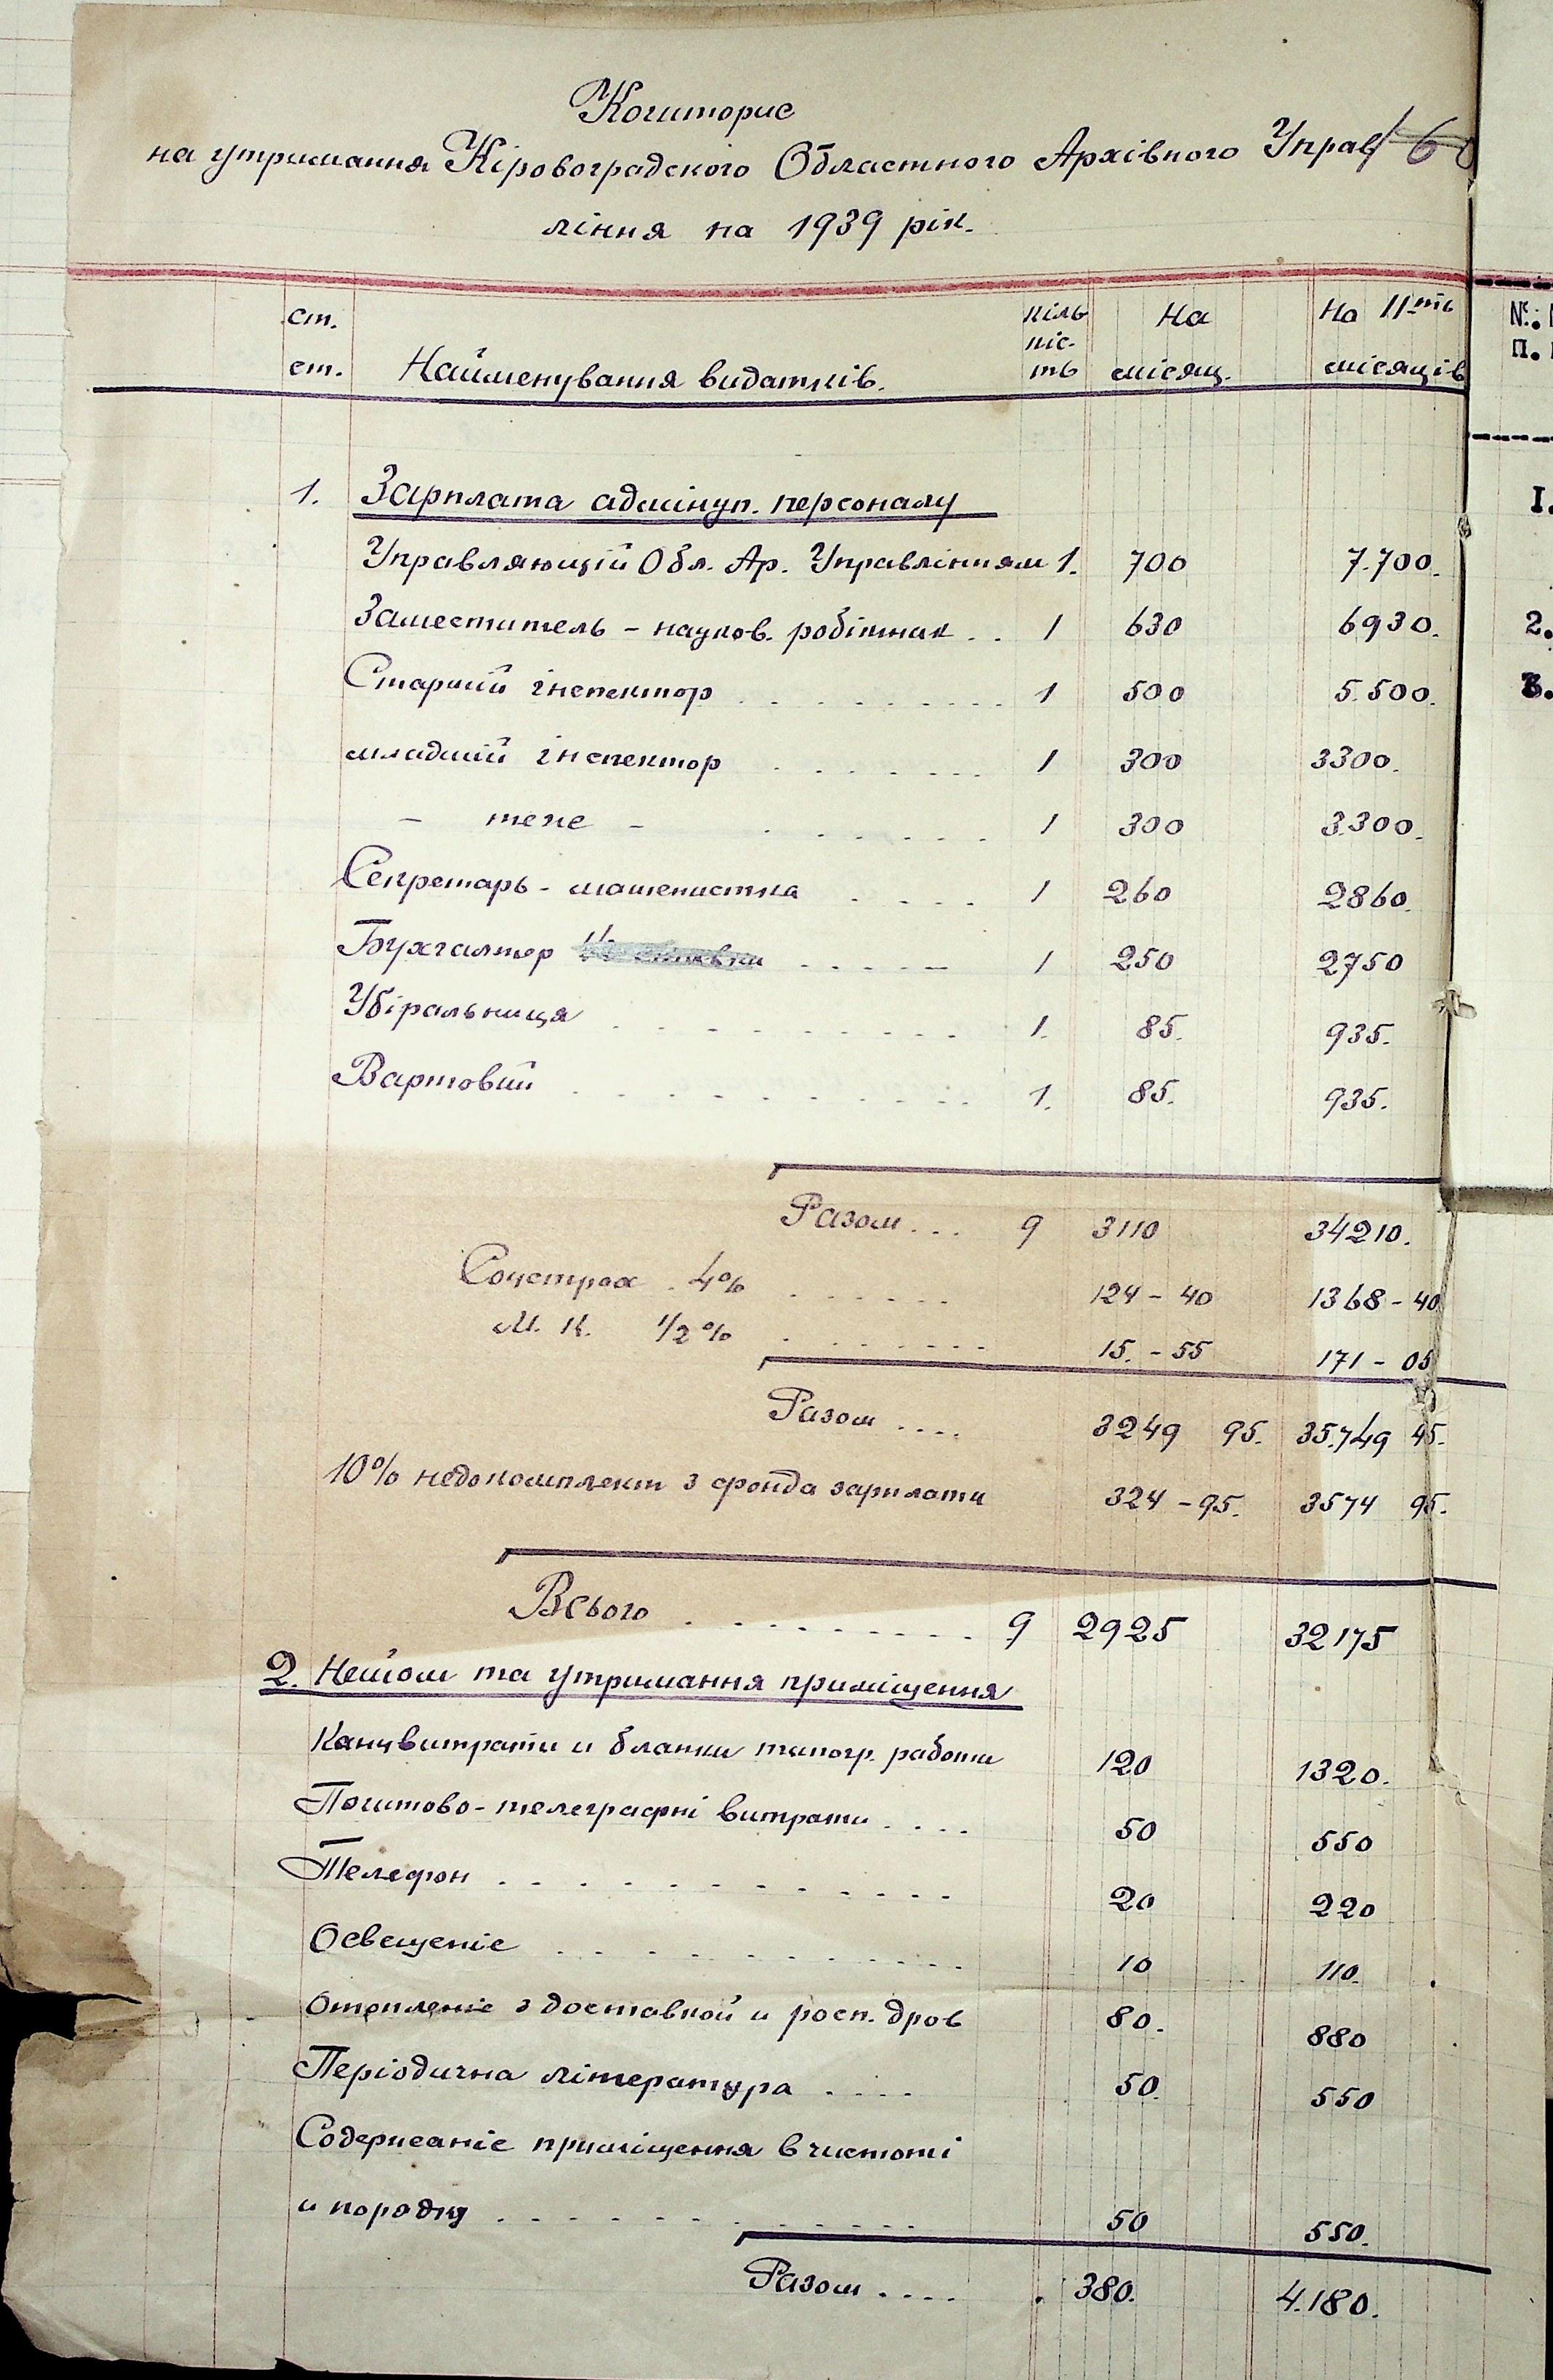 Кошторис
на утримання Кіровоградского Областного Архівного Управ 6
ління на 1939 рік.
ст. кіль На На 11-ть №.
ст. Найменування видатків. кіс- місяц. місяців п.
ть
1. Зарплата адмінуп. персоналу I.
Управляющій Обл. Ар. Управлінням 1. 700 7.700.
Заместитель - науков. робітник . . 1 630 6930. 2.
Старший інспектор . . . . . . . . . 1 500 5.500. 3.
младший інспектор . . . . . . . 1 300 3300.
- теже - . . . . . . 1 300 3.300.
Секретарь - машенистка . . . . 1 260 2860.
Бухгалтер . . . . - 1 250 2750
Убіральниця . . . . . . . . . 1. 85. 935.
Вартовий . . . . . . . . . . 1. 85. 935.
Разом . . . 9 3110 34210.
Соцстрах . 4% . . . . . . 124 - 40 1368 - 40
М. К. 1/2 % . . . . . . . 15. - 55 171 - 05
Разом . . . . 3249 95. 35.749 45.
10% недокомплект з фонда зарплати 324 - 95. 3574 95.
Всього . . . . . . . . . 9 2925 32175
2. Найом та утримання приміщення
Канцвитрати и бланки типогр. работи 120 1320.
Поштово-телеграфні витрати . . . . 50 550
Телефон . . . . . . . . . . . 20 220
Освещеніе . . . . . . . . . . 10 110.
Отепленіе з доставкой и росп. дров 80. 880
Періодична література . . . . 50. 550
Содержаніе приміщення в чистоті
и порядку . . . . . . . . . . 50 550.
Разом . . . . 380. 4.180.